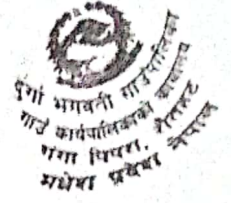 दुर्गा भगवती गाउँपालिका
गाउँ कार्यपालिकाको कार्यालय
गंगा पिपरा, रौतहट
मधेश प्रदेश नेपाल